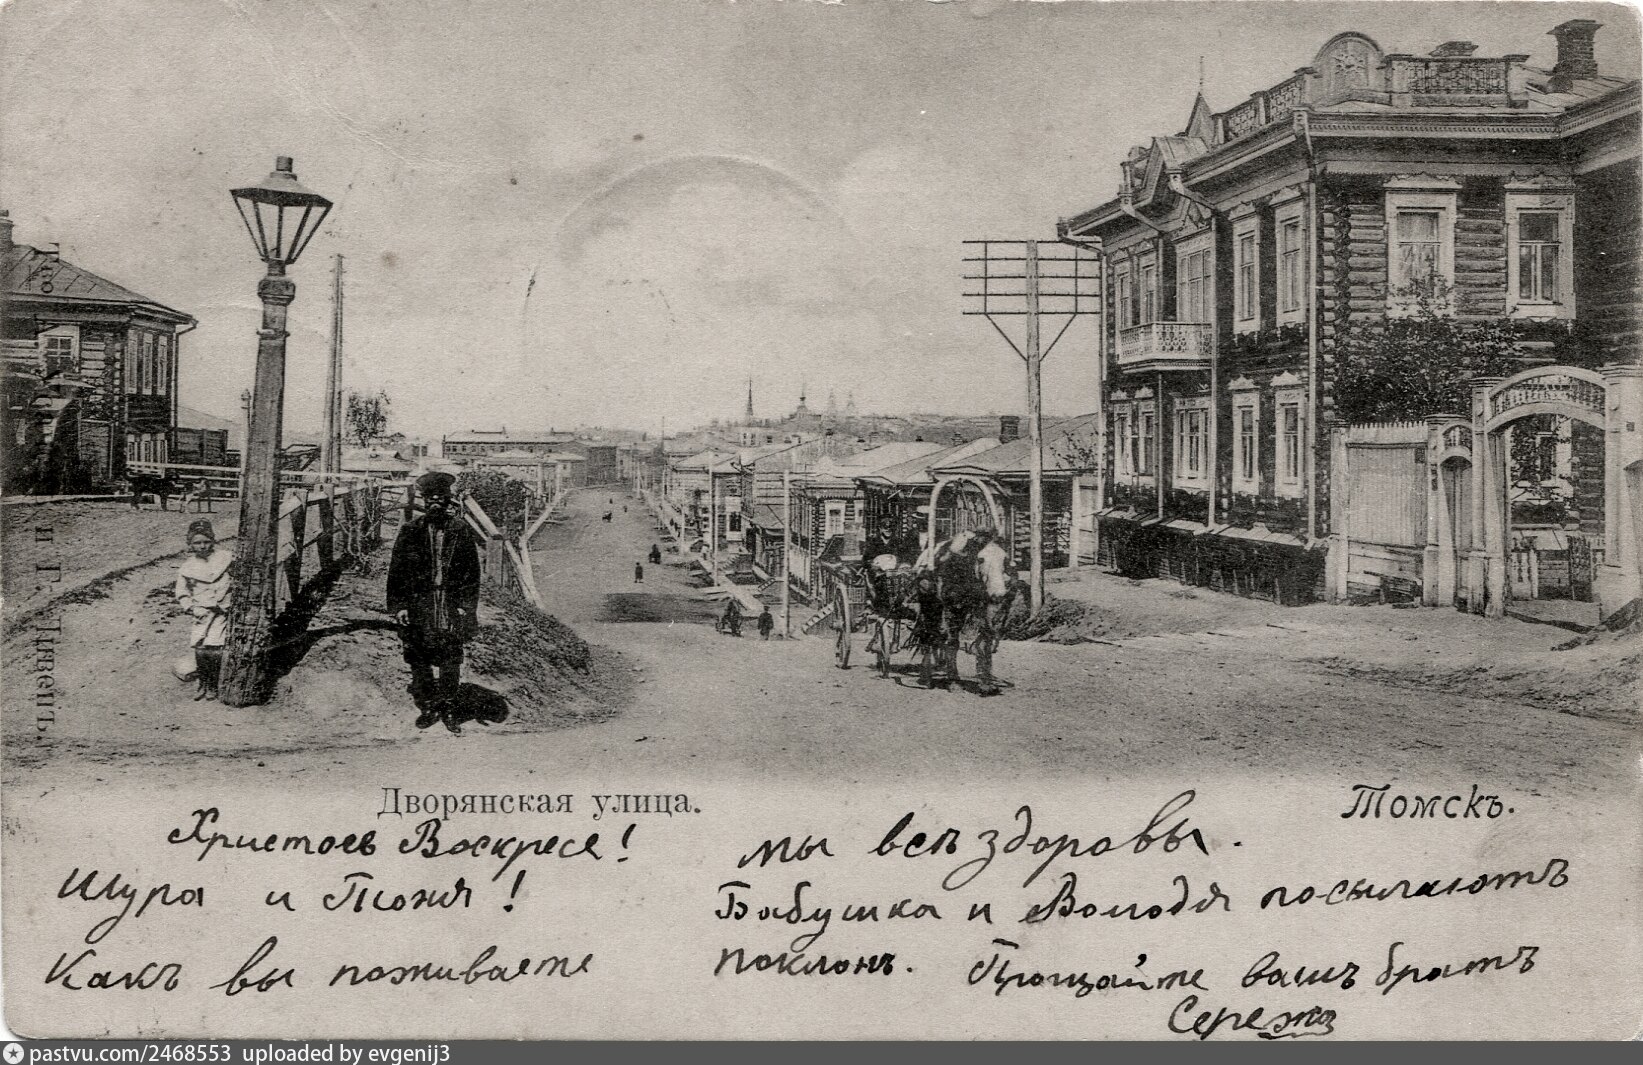 Дворянская улица.
Томскъ.
Христосъ Воскресе!
Шура и Тоня!
Какъ вы поживаете
мы всѣ здоровы.
Бабушка и Володя посылаютъ
поклонъ. Прощайте вашъ братъ
Сережа
и Г. Ливенъ.
pastvu.com/2468553 uploaded by evgenij3